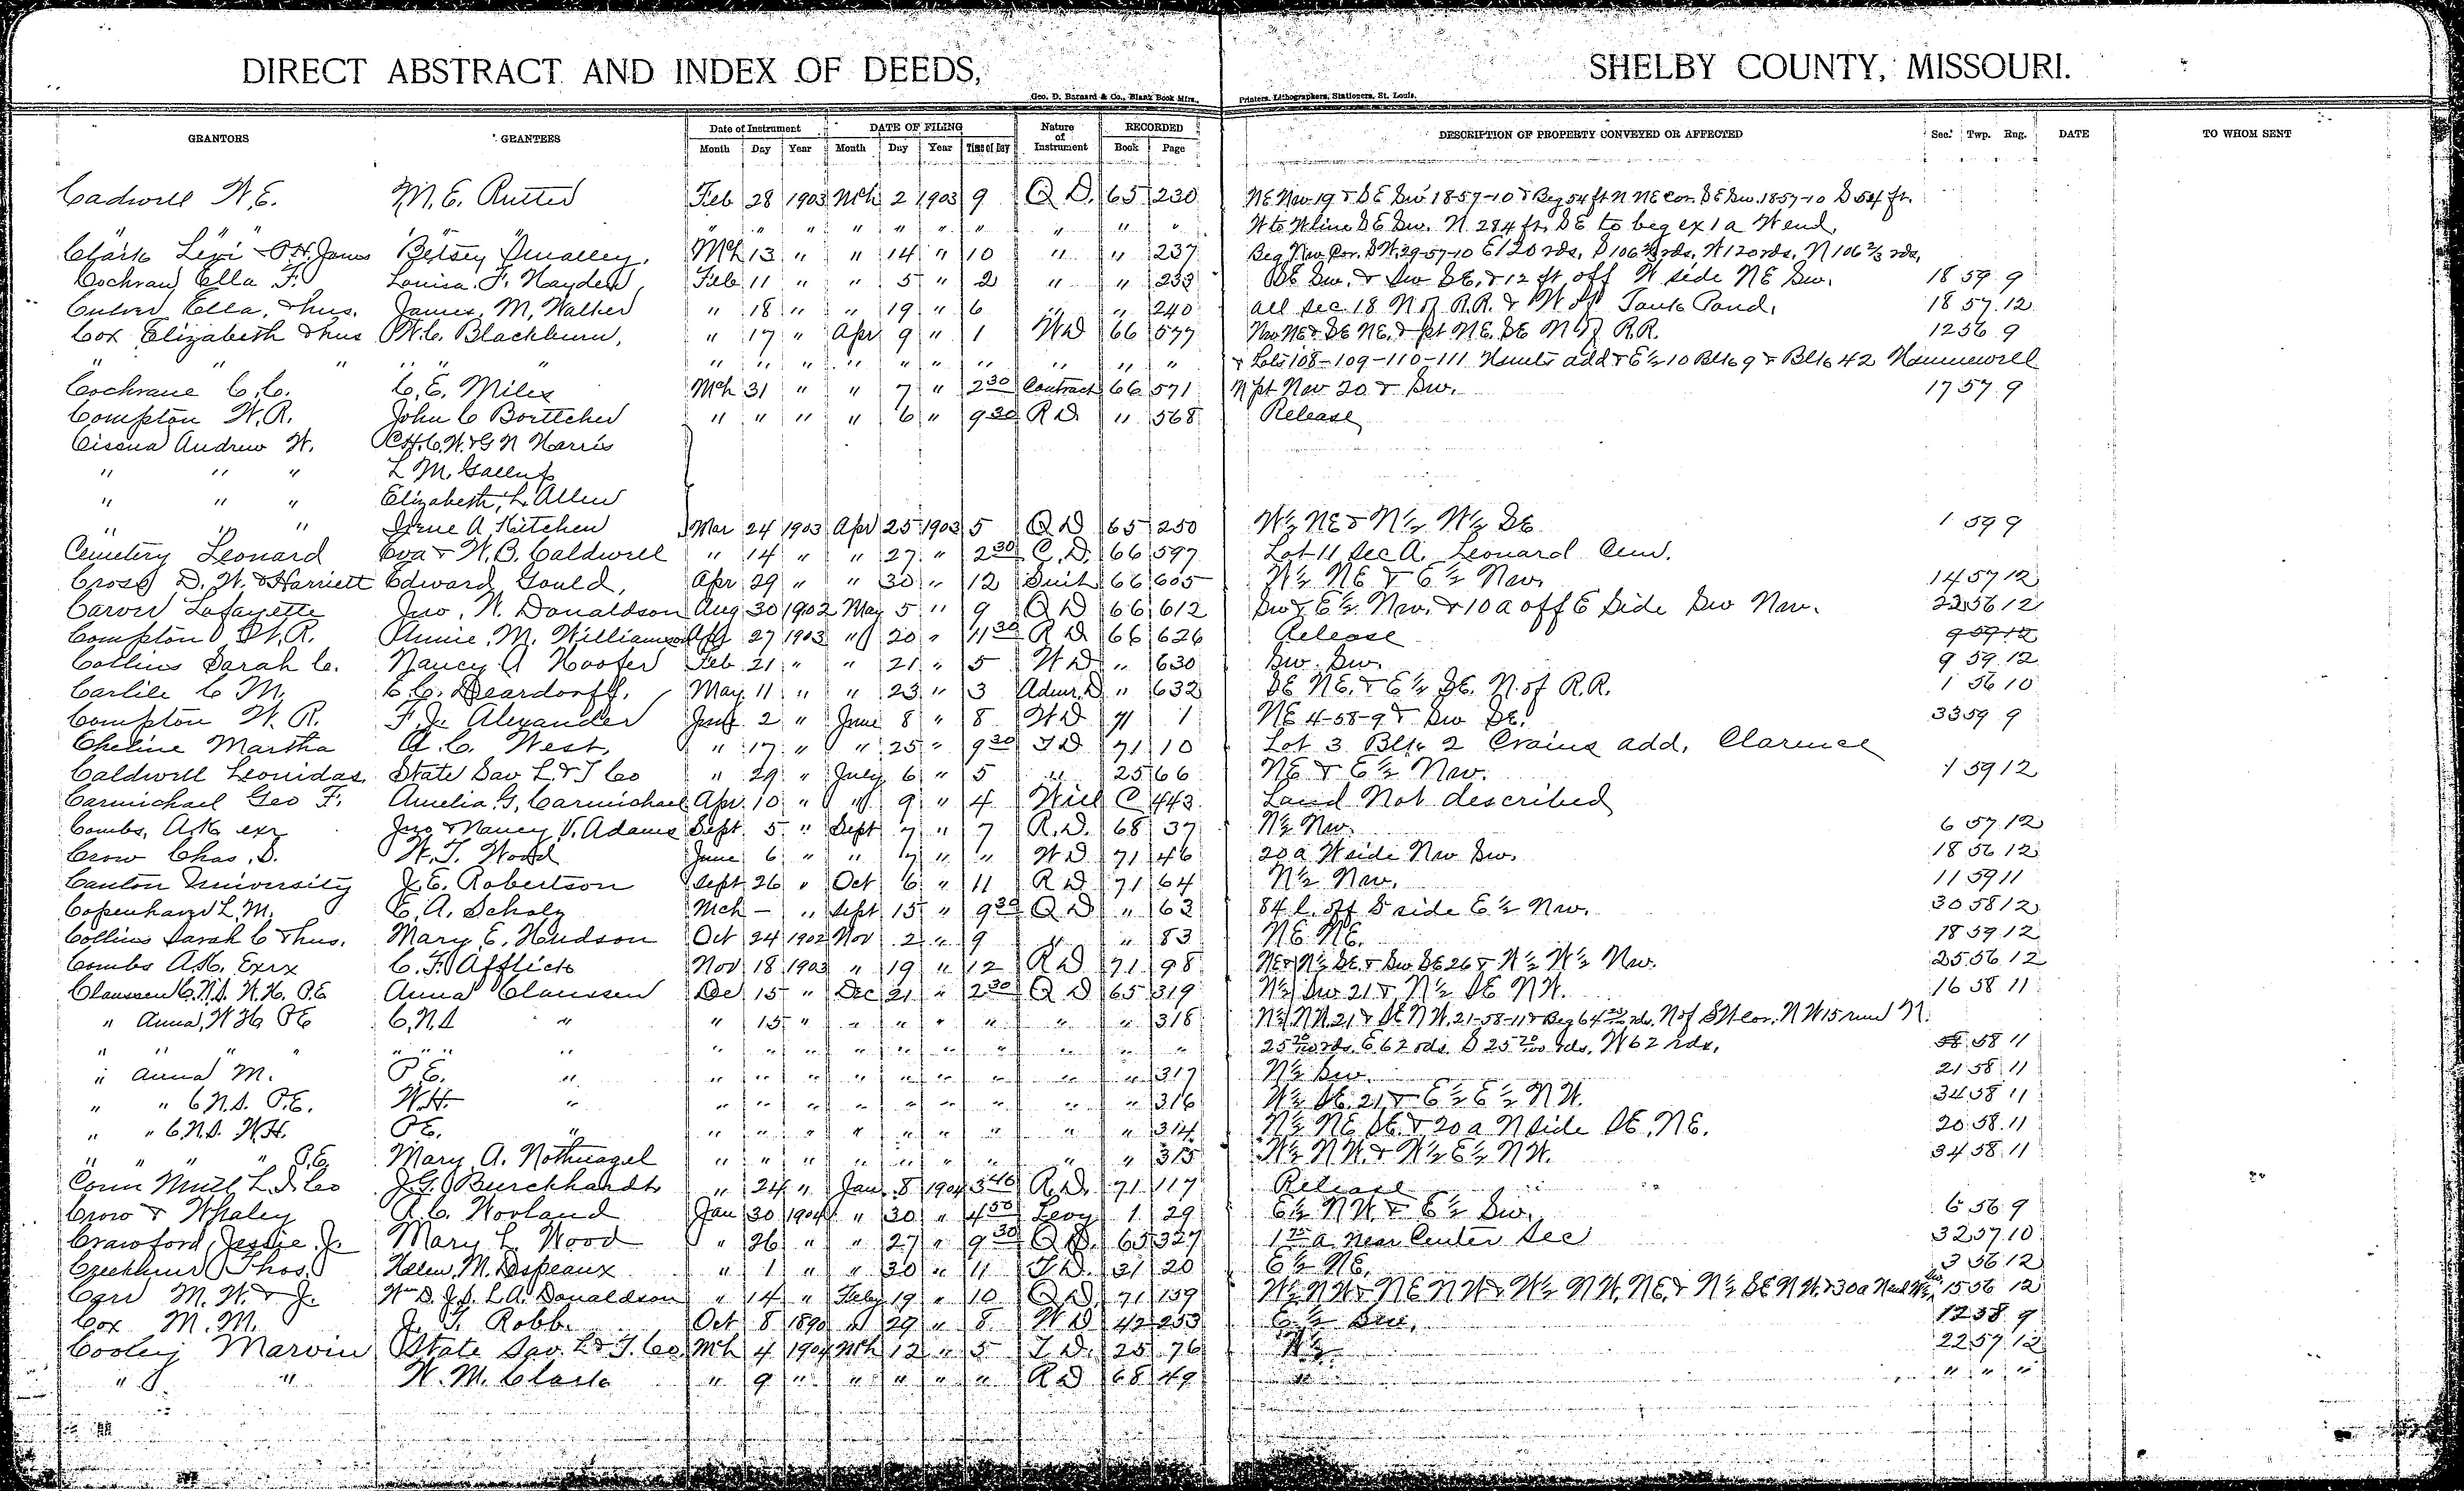 DIRECT ABSTRACT AND INDEX OF DEEDS, SHELBY COUNTY, MISSOURI.
Geo. D. Barnard & Co., Blank Book Mfrs., Printers, Lithographers, Stationers, St. Louis.
GRANTORS GRANTEES Date of Instrument DATE OF FILING Nature of Instrument RECORDED DESCRIPTION OF PROPERTY CONVEYED OR AFFECTED Sec. Twp. Rng. DATE TO WHOM SENT
Month Day Year Month Day Year Time of Day Book Page
Cadwell W.E. M.E. Rutter Feb 28 1903 Mch 2 1903 9 Q D. 65 230 NE Nw 19 & SE Sw 18-57-10 & Beg 54 ft N NE Cor. SE Sw. 18-57-10 S 54 ft.
" " " " " " " " " W to W line SE Sw. N. 284 ft. SE to beg ex 1 a W end.
Clark Levi & P.H. James Betsey Smalley. Mch 13 " " 14 " 10 " " 237 Beg Nw Cor. SW. 29-57-10 E 120 rds, S 106 2/3 rds, W 120 rds, N 106 2/3 rds,
Cochran Ella F. Louisa F. Hayden Feb 11 " " 5 " 2 " " 233 SE Sw. & Sw SE, & 12 ft off W side NE Sw. 18 59 9
Culver Ella, & hus. James M. Walker " 18 " " 19 " 6 " " 240 all Sec. 18 N of R.R. & W of Tank Pond. 18 57 12
Cox Elizabeth & hus W.C. Blackburn, " 17 " Apr 9 " 1 W D 66 577 Nw NE & SE NE, & pt NE. SE N of R.R. 12 56 9
" " " " " " " " " " " " " " " & Lots 108-109-110-111 Hunts add & E 1/2 10 Blk 9 & Blk 42 Hunnewell
Cochrane C.C. C.E. Miles Mch 31 " " 7 " 2 30 Contract 66 571 N pt Nw 20 & Sw. 17 57 9
Compton W.R. John C Boettcher " " " " 6 " 9 30 R D. " 568 Release
Cisena Andrew W. C.H. C.W. & G N Harris
" " " L M. Gallup
" " " Elizabeth L. Allen
" " " Irene A Kitchen Mar 24 1903 Apr 25 1903 5 Q D 65 250 W 1/2 NE & N 1/2 W 1/2 SE 1 59 9
Cemetery Leonard Eva & W.B. Caldwell " 14 " " 27 " 2 30 C.D. 66 597 Lot 11 Sec A. Leonard Cem.
Cross D. W. & Harriett Edward Gould, Apr 29 " " 30 " 12 Suit 66 605 W 1/2 NE & E 1/2 Nw. 14 57 12
Carver Lafayette Jno. W. Donaldson Aug 30 1902 May 5 " 9 Q D 66 612 Sw & E 1/2 Nw. & 10 a off E Side Sw Nw. 22 56 12
Compton W.R. Annie M. Williamson Apr 27 1903 " 20 " 11 30 R D 66 626 Release 9 59 12
Collins Sarah C. Nancy A Hooper Feb 21 " " 21 " 5 W D " 630 Sw. Sw. 9 59 12
Carlile C M. C.C. Deardorff. May 11 " " 23 " 3 Admr. D " 632 SE NE. & E 1/2 SE. N. of R.R. 1 56 10
Compton W. R. F.J. Alexander June 2 " June 8 " 8 W D 71 1 NE 4-58-9 & Sw SE. 33 59 9
Cheline Martha A.C. West, " 17 " " 25 " 9 30 T D 71 10 Lot 3 Blk 2 Crains add, Clarence
Caldwell Leonidas State Sav L. & T Co " 29 " July 6 " 5 " 25 66 NE & E 1/2 Nw. 1 59 12
Carmichael Geo F. Amelia G. Carmichael Apr 10 " " 9 " 4 Will C 443 Land Not described
Combs, A.K. exr Jno & Nancy V. Adams Sept 5 " Sept 7 " 7 R.D. 68 37 N 1/2 Nw. 6 57 12
Crow Chas. S. W.T. Wood June 6 " " 7 " " W D 71 46 20 a W side Nw Sw. 18 56 12
Canton University J.E. Robertson Sept 26 " Oct 6 " 11 R D 71 64 N 1/2 Nw. 11 59 11
Copenhaver L.M. E.A. Scholz Mch - " Sept 15 " 9 30 Q D " 63 84 l. off S side E 1/2 Nw. 30 58 12
Collins Sarah C & hus. Mary E. Hudson Oct 24 1902 Nov 2 " 9 " " 83 NE NE. 18 59 12
Combs A.K. Exrx C. F. Afflick Nov 18 1903 " 19 " 12 R D 71 98 NE & N 1/2 SE. & Sw SE 26 & W 1/2 W 1/2 Nw. 25 56 12
Claussen C.N.S. W.H. P.E Anna Claussen Dec 15 " Dec 21 " 2 30 Q D 65 319 N 1/2 Sw 21 & N 1/2 SE NW. 16 58 11
" Anna, W H, P E C.N.S " " 15 " " " " " " " 318 58 11
" " " " " " " " " " " " " " " " " " 58 11
" Anna M. P.E. " " " " " " " " " " 317 N 1/2 Sw. 21 58 11
" " C.N.S. P.E. W.H. " " " " " " " " " " 316 W 1/2 SE. 21 & E 1/2 E 1/2 NW. 34 58 11
" " C.N.S. W.H. P.E. " " " " " " " " " " 314 N 1/2 NE SE. & 20 a N side SE. NE. 20 58 11
" " " " P.E Mary A. Nothnagel " " " " " " " " " 315 W 1/2 NW. & W 1/2 E 1/2 NW. 34 58 11
Conn Mutl L. I. Co J.G. Burckhardt " 24 " Jan. 8 1904 3 40 R.D. 71 117 Release
Crow & Whaley R.C. Worland Jan 30 1904 " 30 " 4 50 Levy 1 29 E 1/2 NW. & E 1/2 Sw. 6 56 9
Crawford, Jessie J. Mary L. Wood " 26 " " 27 " 9 30 Q D. 65 327 a. Near Center Sec 32 57 10
Thos. Helen M. Despeaux " 1 " " 30 " 11 T D. 31 20 E 1/2 NE. 3 56 12
M. W. & J. Wm D. J.S. L.A. Donaldson " 14 " Feby 19 " 10 Q D. 71 139 W 1/2 NW & NE NW & W 1/2 NW. NE. & N 1/2 SE NW. & 30 a 15 56 12
Cox M.M. J. T. Robb. Oct 8 1890 " 29 " 8 W D 42 253 E 1/2 Sw. 12 58 9
Cooley Marvin State Sav. L & T. Co Mch 4 1904 Mch 12 " 5 T D. 25 76 N 1/2 22 57 12
" " W. M. Clark " 9 " " " " " R D 68 49 " " " "